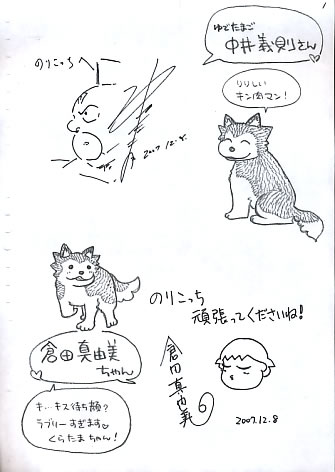 ゆでたまご
中井義則さん
りりしい
キン肉マン!
のりこっちへ
2007.12.8.
のりこっち
頑張ってくださいね!
倉田真由美
ちゃん
キ…キス待ち顔?
ラブリーすぎます
くらたまちゃん!
倉田真由美
2007.12.8